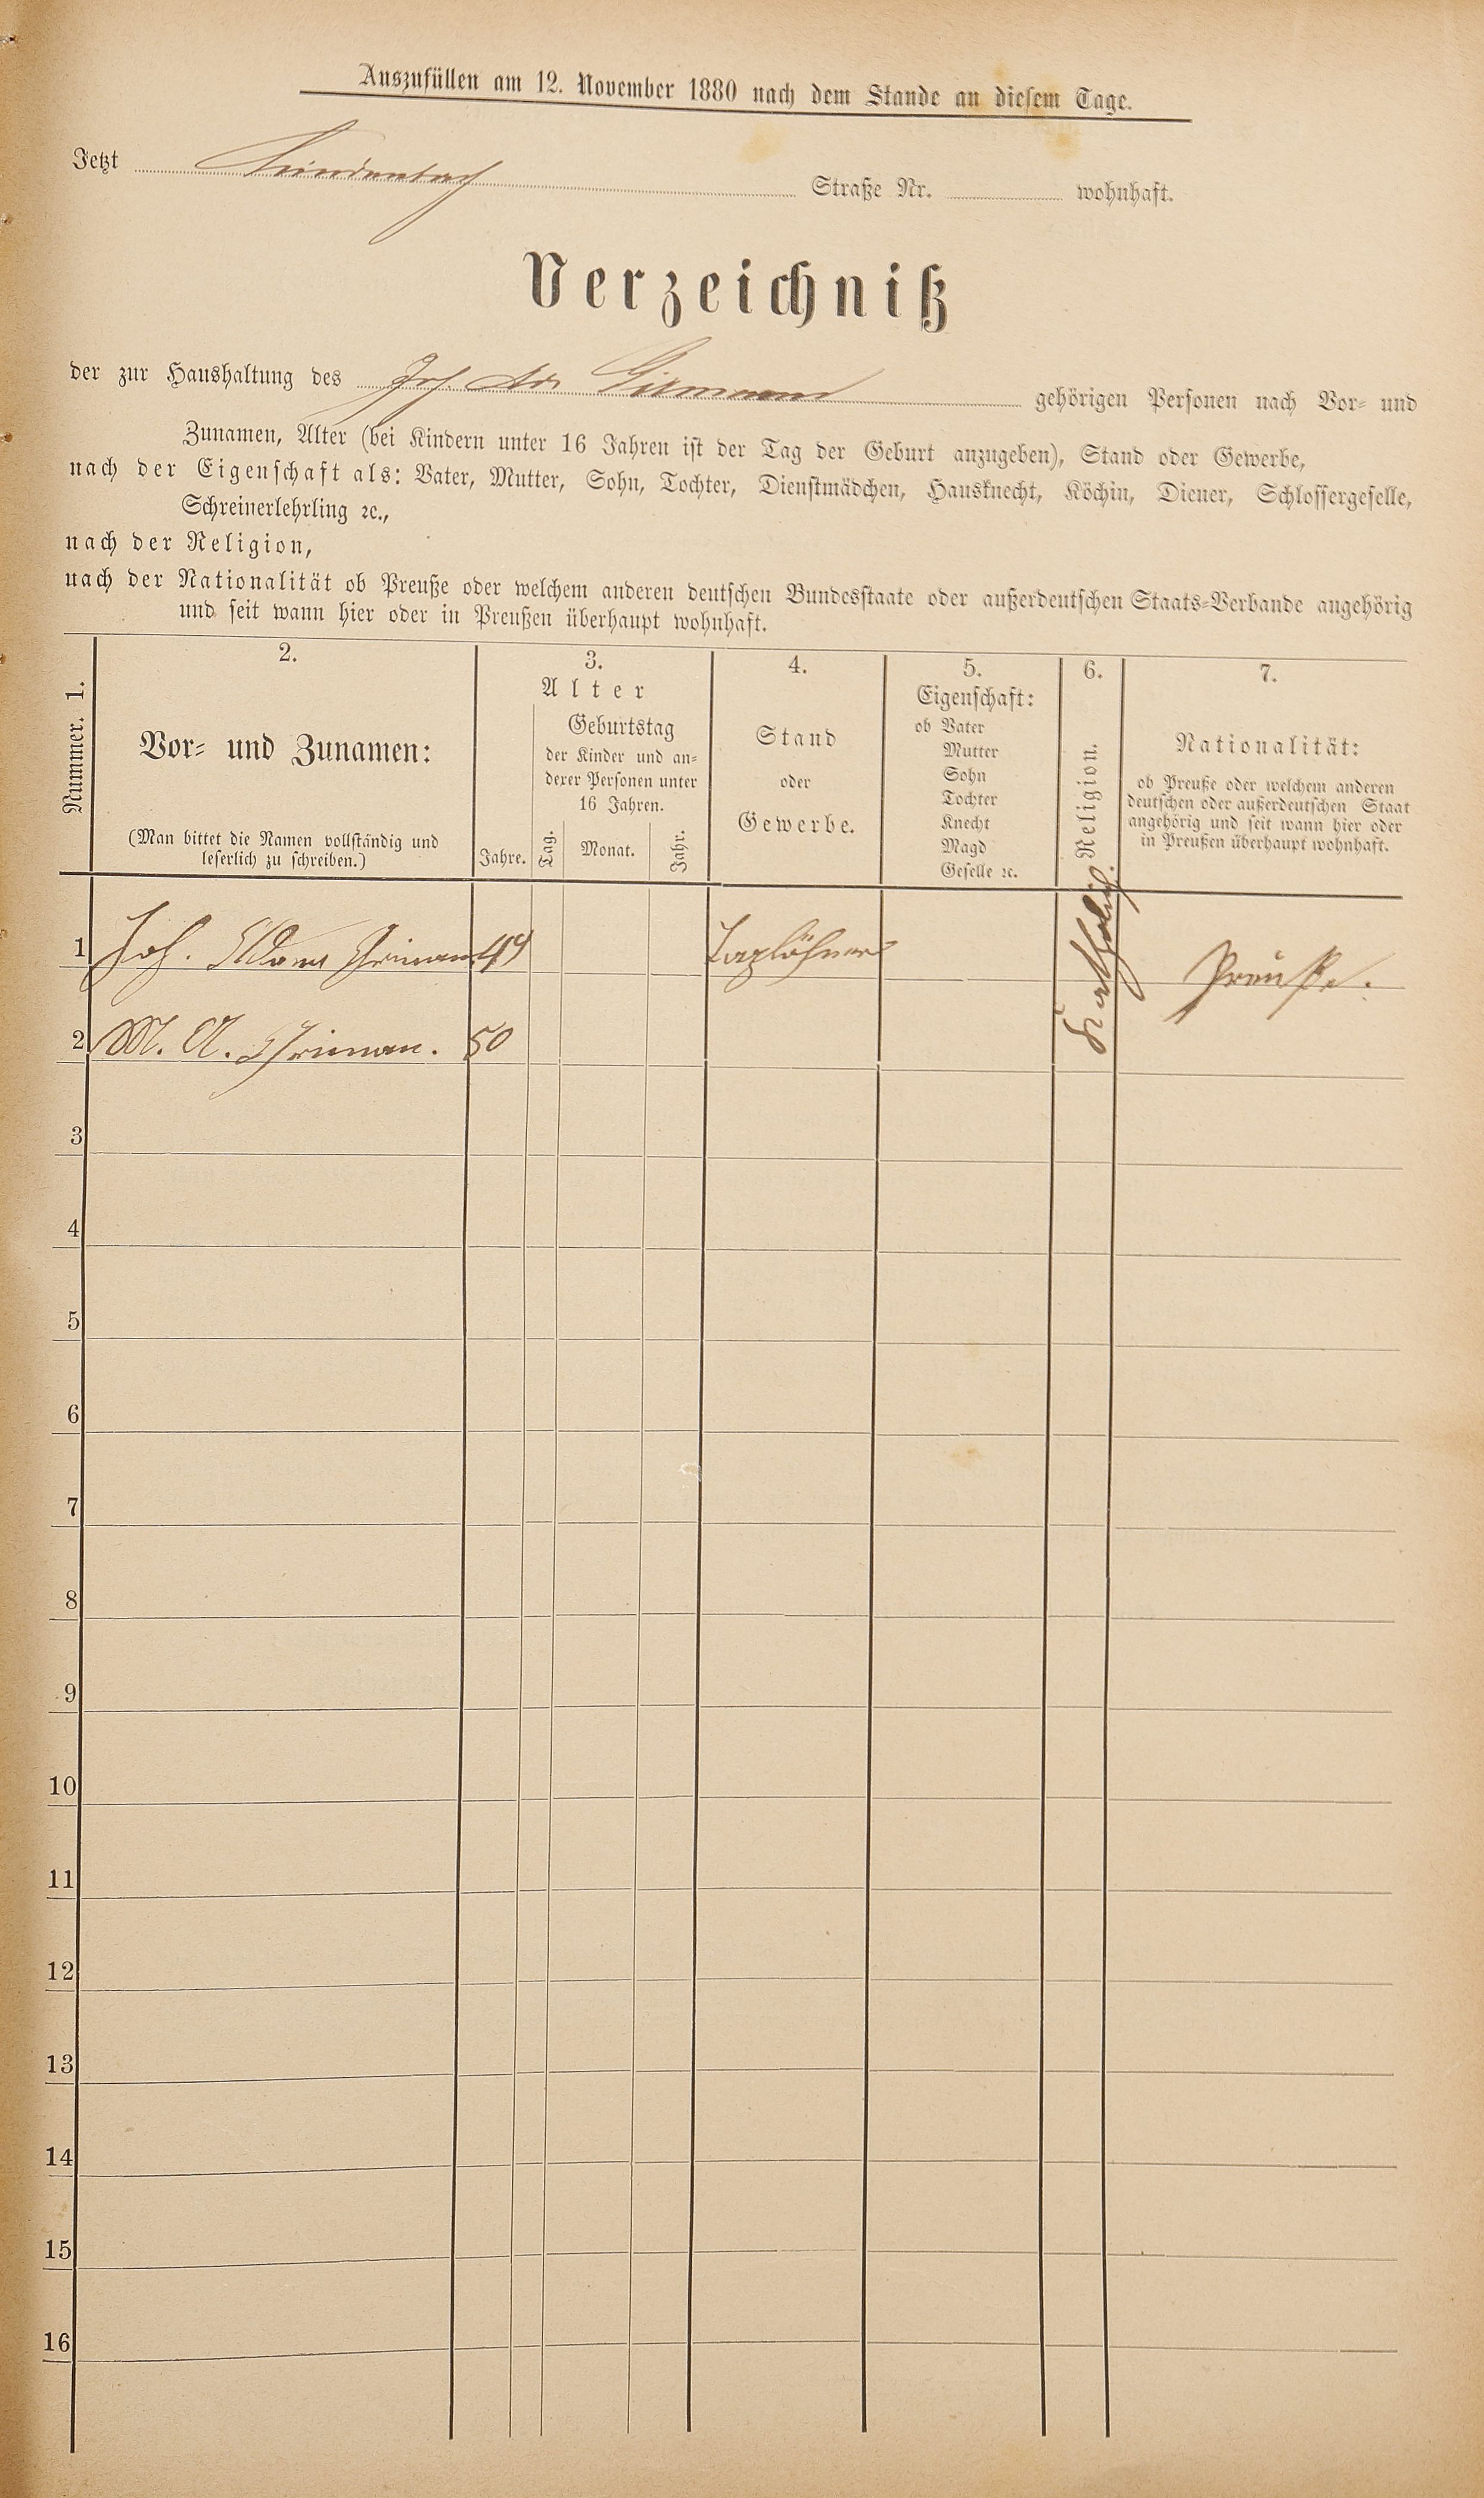 Auszufüllen am 12. November 1880 nach dem Stande an diesem Tage.
Jetzt Lindenbach Straße Nr. wohnhaft.
Verzeichniß
der zur Haushaltung des Joh. gehörigen Personen nach Vor- und
Zunamen, Alter (bei Kindern unter 16 Jahren ist der Tag der Geburt anzugeben), Stand oder Gewerbe,
nach der Eigenschaft als: Vater, Mutter, Sohn, Tochter, Dienstmädchen, Hausknecht, Köchin, Diener, Schlossergeselle,
Schreinerlehrling ꝛc.,
nach der Religion,
nach der Nationalität ob Preuße oder welchem anderen deutschen Bundesstaate oder außerdeutschen Staats-Verbande angehörig
und seit wann hier oder in Preußen überhaupt wohnhaft.
Nummer. 1.
2.
Vor- und Zunamen:
(Man bittet die Namen vollständig und
leserlich zu schreiben.)
3.
Alter
Jahre.
Geburtstag
der Kinder und an-
derer Personen unter
16 Jahren.
Tag. Monat. Jahr.
4.
Stand
oder
Gewerbe.
5.
Eigenschaft:
ob Vater
Mutter
Sohn
Tochter
Knecht
Magd
Geselle ꝛc.
6.
Religion.
7.
Nationalität:
ob Preuße oder welchem anderen
deutschen oder außerdeutschen Staat
angehörig und seit wann hier oder
in Preußen überhaupt wohnhaft.
1 Joh. Adam 49 Taglöhner Katholisch. Preuße.
2 M. A. 50
3
4
5
6
7
8
9
10
11
12
13
14
15
16